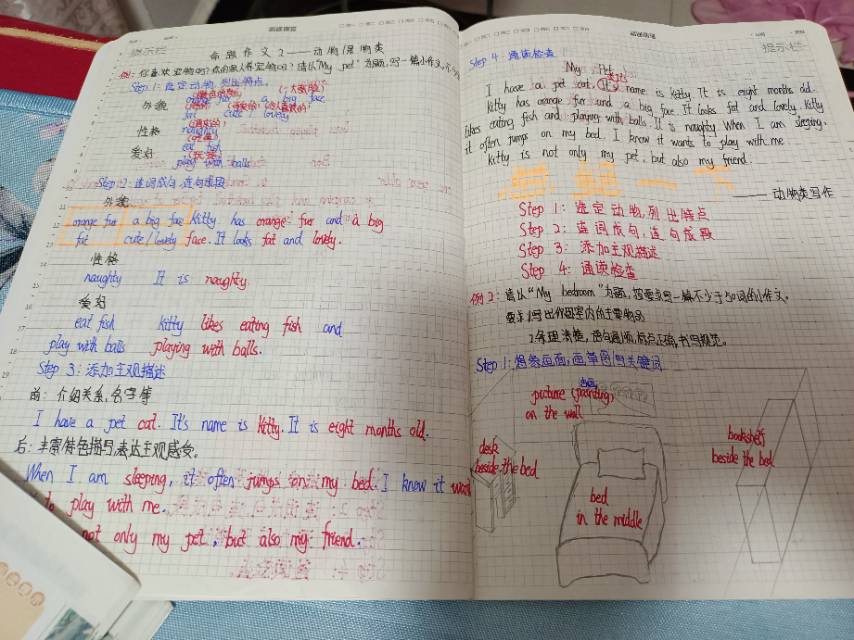 提示栏
命题作文2——动物/宠物类
例1: 你喜欢宠物吗? 你的家人养宠物吗? 请以"My pet"为题,写一篇小作文,不少
Step 1: 选定动物,列出特点。
外貌
orange fur a big face
fat cute / lovely
性格 naughty
爱好 eat fish
play with balls
Step 2: 连词成句,连句成段
外貌
orange fur a big face Kitty has orange fur and a big
fat cute/lovely face. It looks fat and lovely.
性格
naughty It is naughty.
爱好
eat fish Kitty likes eating fish and
play with balls playing with balls.
Step 3: 添加主观描述
前: 介绍关系,名字等
I have a pet cat. It's name is Kitty. It is eight months old.
后: 丰富特色描写,表达主观感受。
When I am sleeping, it often jumps on my bed. I know it
to play with me.
not only my pet, but also my friend.
提示栏
Step 4: 通读检查
My Pet
I have a pet cat. It's name is Kitty. It is eight months old.
Kitty has orange fur and a big face. It looks fat and lovely. Kitty
likes eating fish and playing with balls. It is naughty. When I am sleeping,
it often jumps on my bed. I know it wants to play with me.
Kitty is not only my pet, but also my friend.
——动物类写作
Step 1: 选定动物,列出特点
Step 2: 连词成句,连句成段
Step 3: 添加主观描述
Step 4: 通读检查
例2: 请以"My bedroom"为题,按要求写一篇不少于50词的小作文。
要求: 1.写出你卧室内的主要物品
2.条理清楚,语句通顺,标点正确,书写规范。
Step 1: 想象画面,画草图写关键词
picture (painting)
on the wall
desk
beside the bed
bookshelf
beside the bed
bed
in the middle